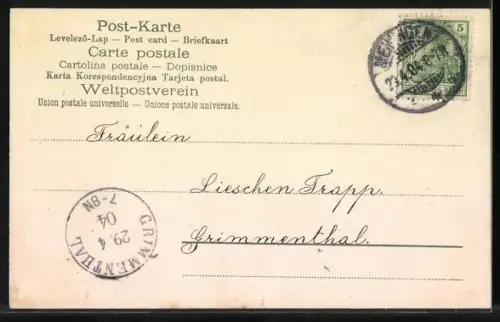 Post-Karte
Levelező-Lap — Post card — Briefkaart
Carte postale
Cartolina postale — Dopisnice
Karta Korespondencyjna Tarjeta postal.
Weltpostverein
Union postale universelle — Unione postale universale.
5
MEININGEN
Fräulein
Lieschen Trapp.
Grimmenthal.
GRIMMENTHAL
29.4
04
7-8N